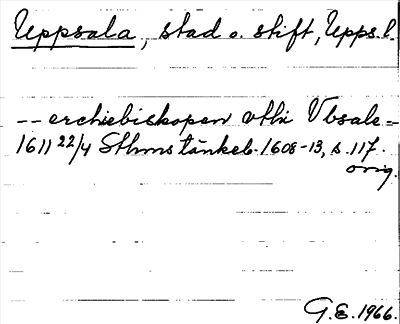 Uppsala, stad o. stift, Upps. l.
-- erchiebiskopen vthi Vbsale =
1611 22/4 Sthms tänkeb. 1608-13, s. 117.
orig.
G.E. 1966.